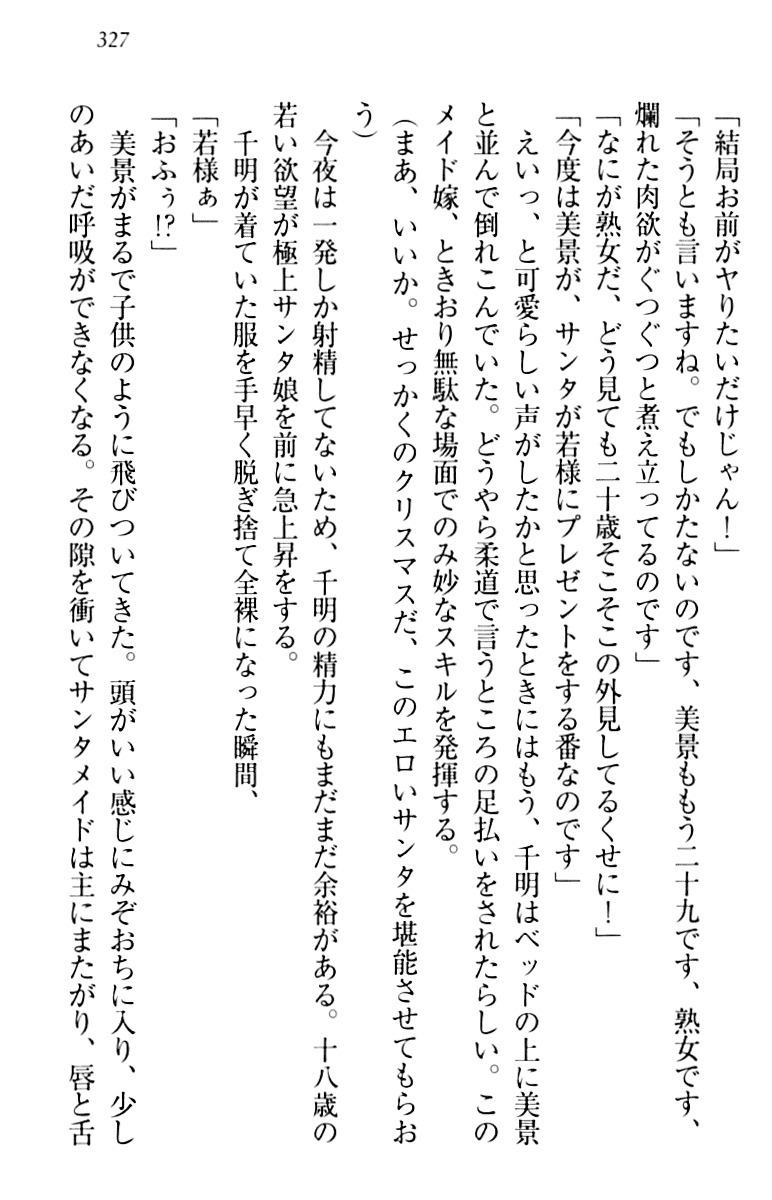 327
「結局お前がヤりたいだけじゃん！」
「そうとも言いますね。でもしかたないのです、美景ももう二十九です、熟女です、
爛れた肉欲がぐつぐつと煮え立ってるのです」
「なにが熟女だ、どう見ても二十歳そこそこの外見してるくせに！」
「今度は美景が、サンタが若様にプレゼントをする番なのです」
えいっ、と可愛らしい声がしたかと思ったときにはもう、千明はベッドの上に美景
と並んで倒れこんでいた。どうやら柔道で言うところの足払いをされたらしい。この
メイド嫁、ときおり無駄な場面でのみ妙なスキルを発揮する。
（まあ、いいか。せっかくのクリスマスだ、このエロいサンタを堪能させてもらお
う）
今夜は一発しか射精してないため、千明の精力にもまだまだ余裕がある。十八歳の
若い欲望が極上サンタ娘を前に急上昇をする。
千明が着ていた服を手早く脱ぎ捨て全裸になった瞬間、
「若様ぁ」
「おふぅ!?」
美景がまるで子供のように飛びついてきた。頭がいい感じにみぞおちに入り、少し
のあいだ呼吸ができなくなる。その隙を衝いてサンタメイドは主にまたがり、唇と舌